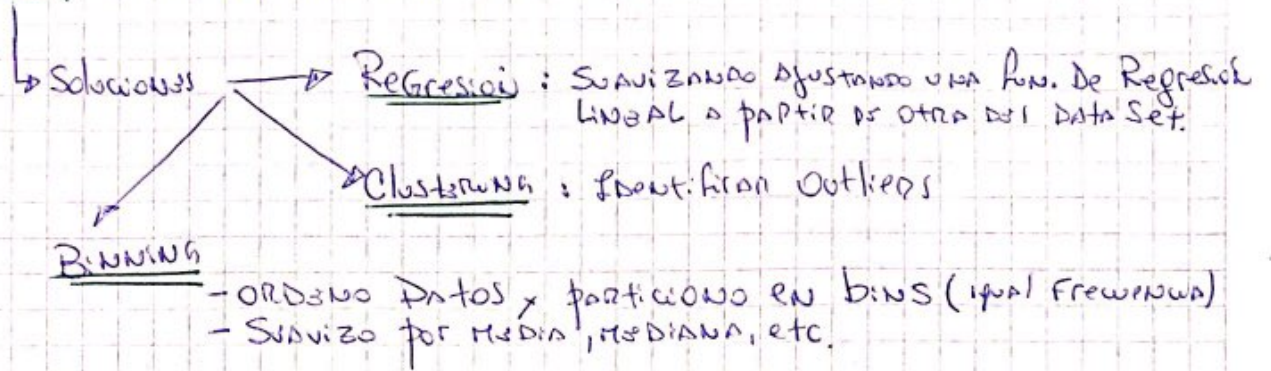 Soluciones
Regresión : Suavizando ajustando una fun. De Regresión
Lineal a partir de otra del Data Set.
Clustering : Identifican Outliers
Binning
- Ordeno Datos y particiono en bins (igual Frecuencia)
- Suavizo por media, mediana, etc.